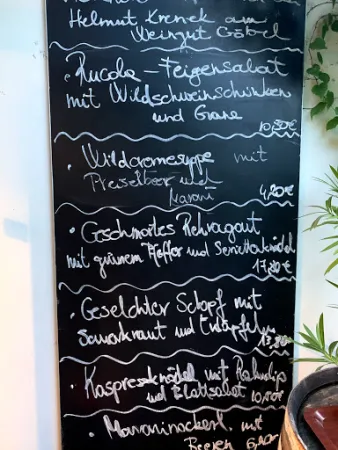 Helmut Krenek am
Weingut Göbel
Rucola-Feigensalat
mit Wildschweinschinken
und Grana
10,50€
• Wildcremesuppe mit
Preiselbeer und
Maroni 4,90€
• Geschmortes Rehragout
mit grünem Pfeffer und Serviettenknödel
17,80€
• Geselchter Schopf mit
Sauerkraut und Erdäpfeln
13,80€
• Kaspressknödel mit Rahmdip
und Blattsalat 10,50€
• Maroninockerl mit
Beeren